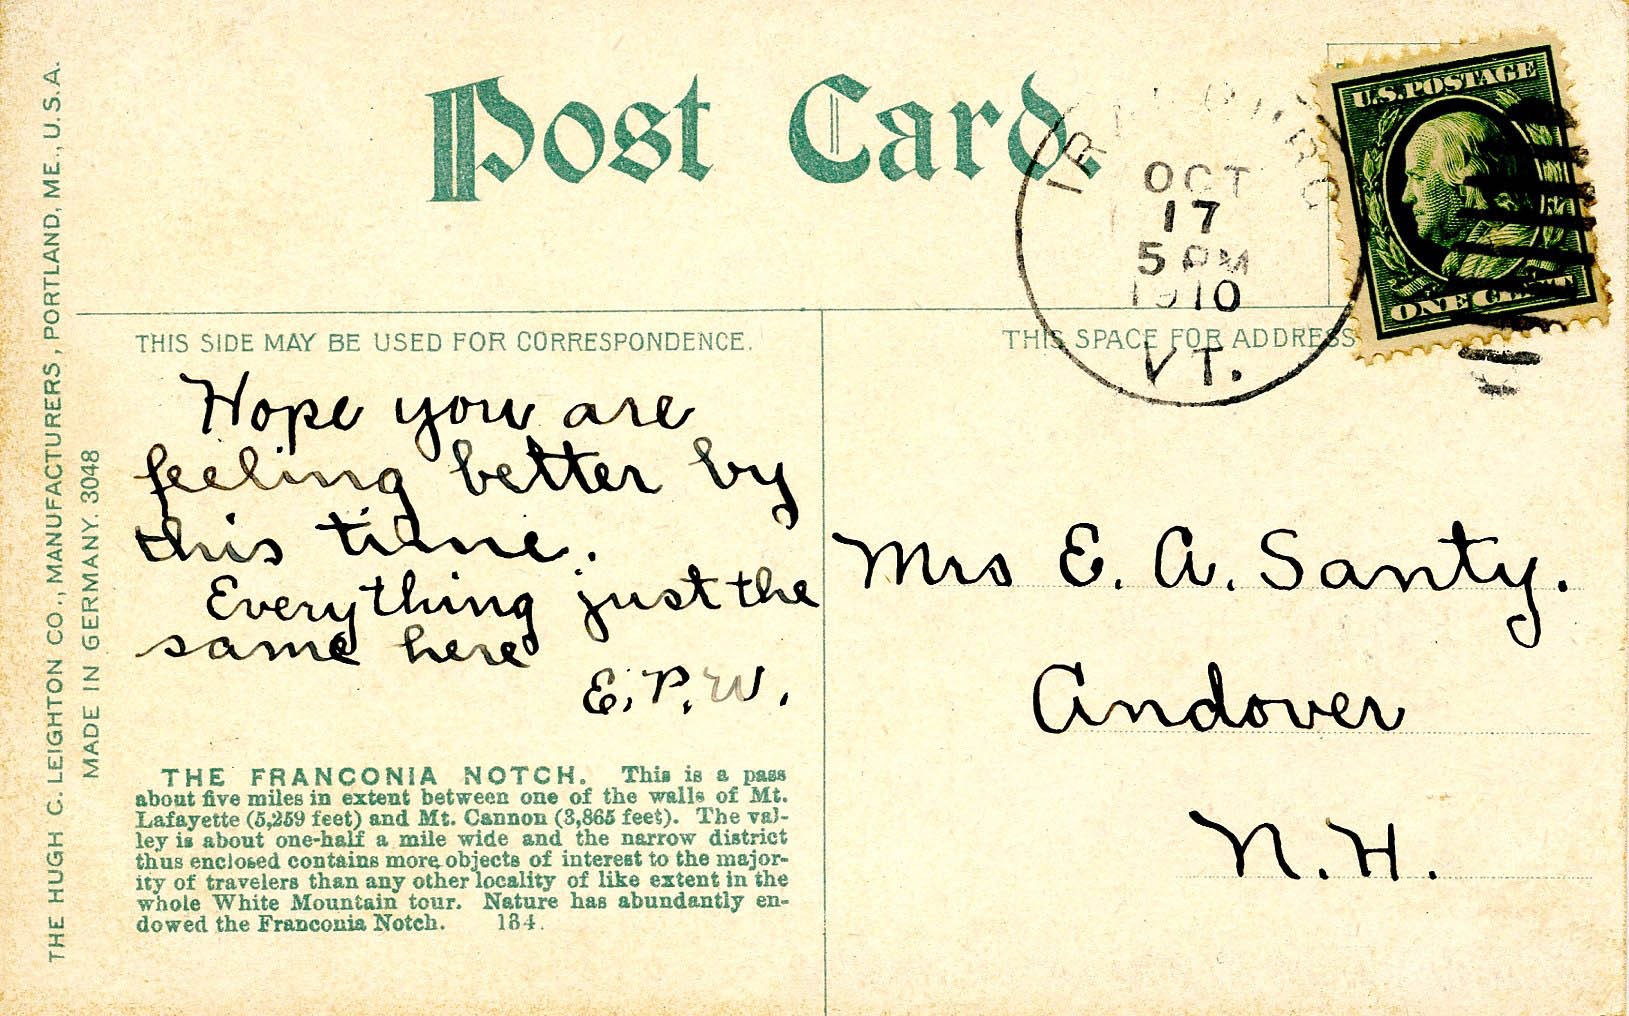 Post Card.
U.S. POSTAGE
ONE CENT
OCT
17
5 PM
1910
VT.
THIS SIDE MAY BE USED FOR CORRESPONDENCE.
THIS SPACE FOR ADDRESS
Hope you are
feeling better by
this time.
Everything just the
same here
E. P. W.
Mrs E. A. Santy.
Andover
N. H.
THE FRANCONIA NOTCH. This is a pass
about five miles in extent between one of the walls of Mt.
Lafayette (5,259 feet) and Mt. Cannon (3,865 feet). The val-
ley is about one-half a mile wide and the narrow district
thus enclosed contains more objects of interest to the major-
ity of travelers than any other locality of like extent in the
whole White Mountain tour. Nature has abundantly en-
dowed the Franconia Notch. 184.
THE HUGH C. LEIGHTON CO., MANUFACTURERS, PORTLAND, ME., U.S.A.
MADE IN GERMANY. 3048